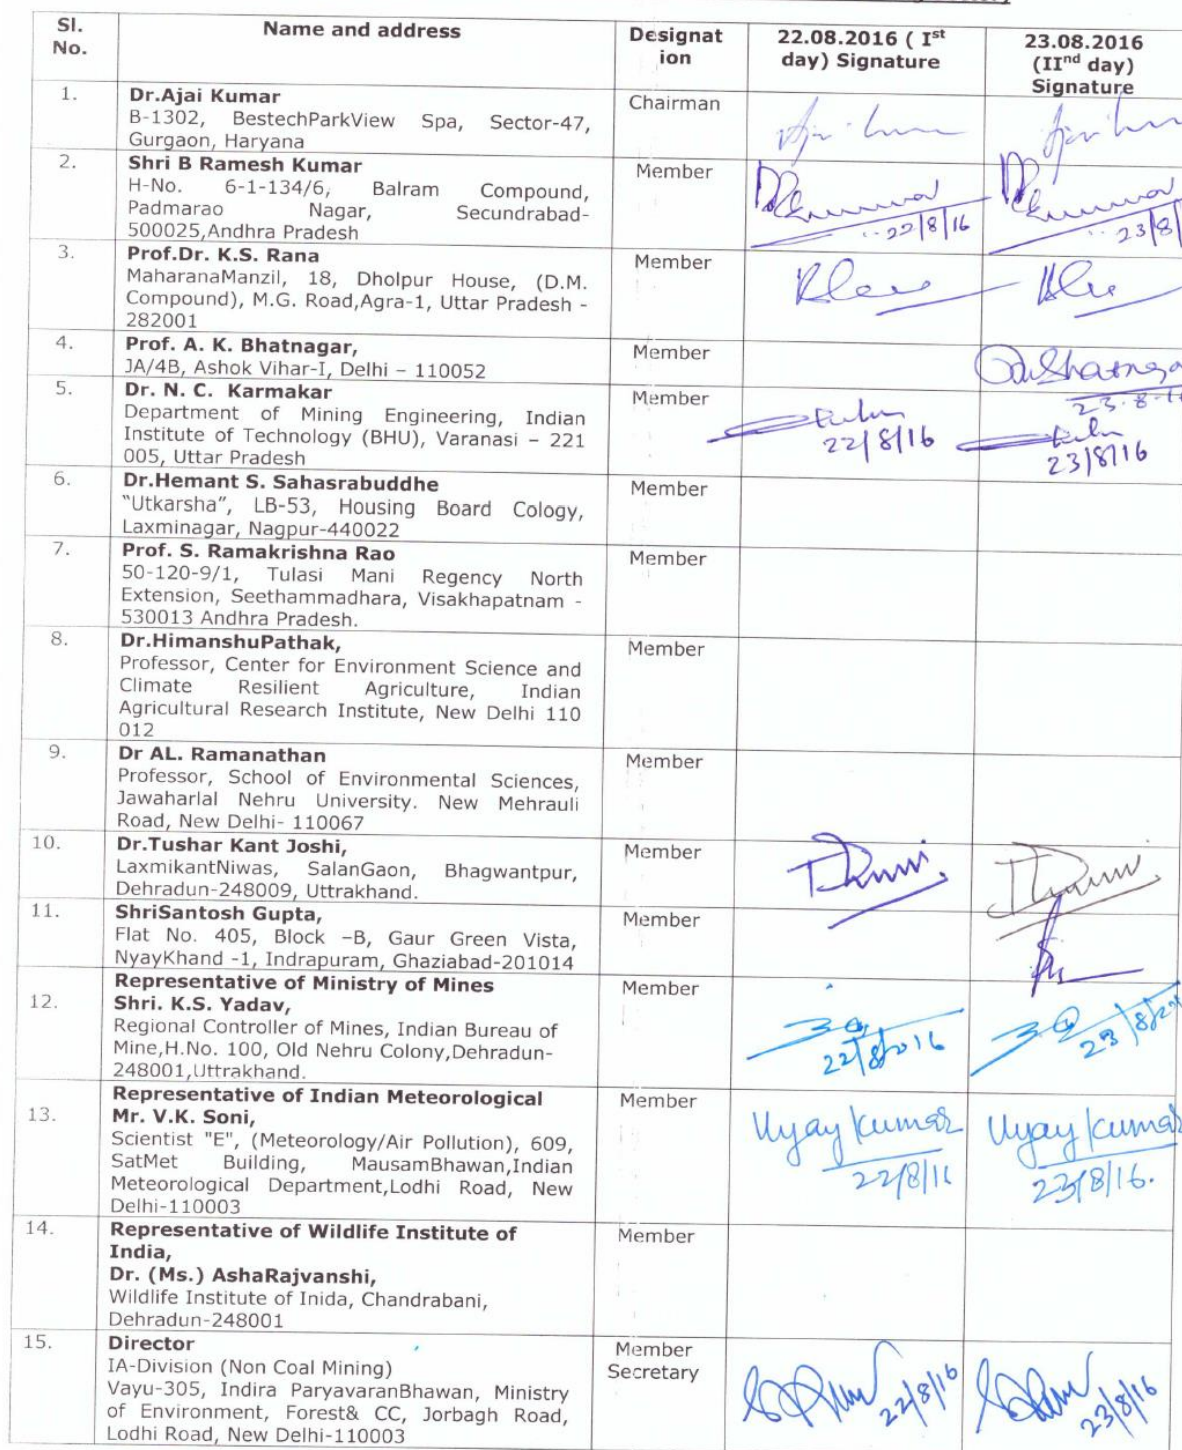 Sl.
No.
Name and address
Designat
ion
22.08.2016 ( Ist
day) Signature
23.08.2016
(IInd day)
Signature
1.
Dr.Ajai Kumar
B-1302, BestechParkView Spa, Sector-47,
Gurgaon, Haryana
Chairman
2.
Shri B Ramesh Kumar
H-No. 6-1-134/6, Balram Compound,
Padmarao Nagar, Secundrabad-
500025,Andhra Pradesh
Member
22/8/16
23/8/
3.
Prof.Dr. K.S. Rana
MaharanaManzil, 18, Dholpur House, (D.M.
Compound), M.G. Road,Agra-1, Uttar Pradesh -
282001
Member
4.
Prof. A. K. Bhatnagar,
JA/4B, Ashok Vihar-I, Delhi – 110052
Member
23.8.1
5.
Dr. N. C. Karmakar
Department of Mining Engineering, Indian
Institute of Technology (BHU), Varanasi – 221
005, Uttar Pradesh
Member
22/8/16
23/8/16
6.
Dr.Hemant S. Sahasrabuddhe
"Utkarsha", LB-53, Housing Board Cology,
Laxminagar, Nagpur-440022
Member
7.
Prof. S. Ramakrishna Rao
50-120-9/1, Tulasi Mani Regency North
Extension, Seethammadhara, Visakhapatnam -
530013 Andhra Pradesh.
Member
8.
Dr.HimanshuPathak,
Professor, Center for Environment Science and
Climate Resilient Agriculture, Indian
Agricultural Research Institute, New Delhi 110
012
Member
9.
Dr AL. Ramanathan
Professor, School of Environmental Sciences,
Jawaharlal Nehru University. New Mehrauli
Road, New Delhi- 110067
Member
10.
Dr.Tushar Kant Joshi,
LaxmikantNiwas, SalanGaon, Bhagwantpur,
Dehradun-248009, Uttrakhand.
Member
11.
ShriSantosh Gupta,
Flat No. 405, Block –B, Gaur Green Vista,
NyayKhand -1, Indrapuram, Ghaziabad-201014
Member
12.
Representative of Ministry of Mines
Shri. K.S. Yadav,
Regional Controller of Mines, Indian Bureau of
Mine,H.No. 100, Old Nehru Colony,Dehradun-
248001,Uttrakhand.
Member
22/8/2016
23/8/2
13.
Representative of Indian Meteorological
Mr. V.K. Soni,
Scientist "E", (Meteorology/Air Pollution), 609,
SatMet Building, MausamBhawan,Indian
Meteorological Department,Lodhi Road, New
Delhi-110003
Member
Vijay Kumar
22/8/16
Vijay Kumar
23/8/16.
14.
Representative of Wildlife Institute of
India,
Dr. (Ms.) AshaRajvanshi,
Wildlife Institute of Inida, Chandrabani,
Dehradun-248001
Member
15.
Director
IA-Division (Non Coal Mining)
Vayu-305, Indira ParyavaranBhawan, Ministry
of Environment, Forest& CC, Jorbagh Road,
Lodhi Road, New Delhi-110003
Member
Secretary
22/8/16
23/8/16